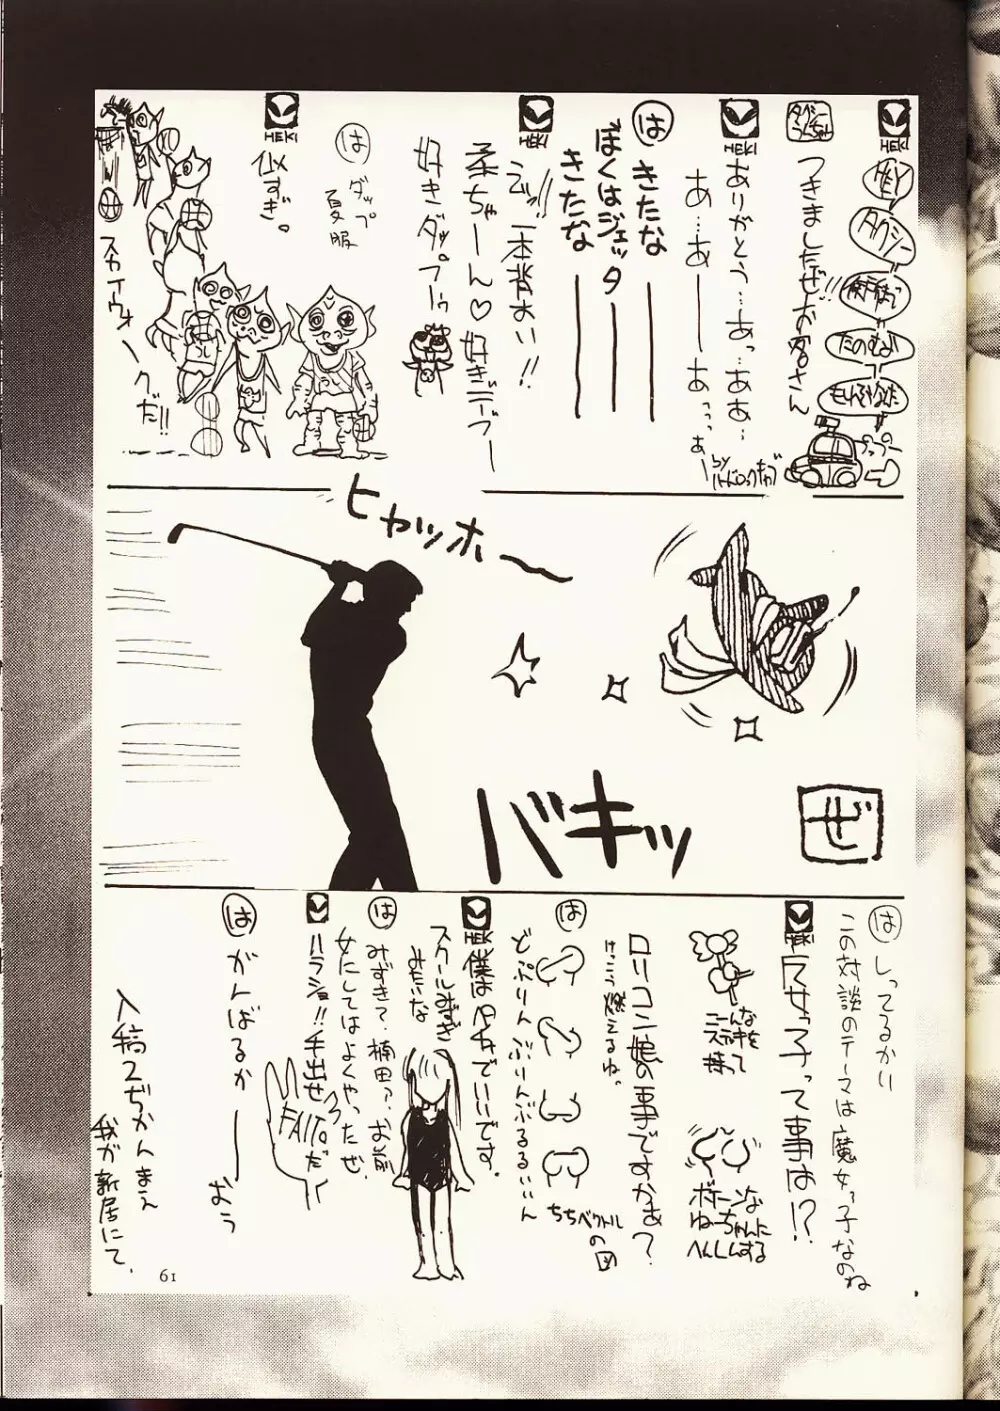 HEKI
HEY
タクシー
たのむよ
タクシーうんちゃん
つきましたぜお客さん!!
HEKI
ありがとう…あっ…ああ…
あ…あ――あっっ
by ハードロックキャブ
は
きたな――
ぼくはジェッタ――
きたな――
HEKI
うっ!!一本背おい!!
柔ちゃーん♡好きデブー
好きダップーゥ
は
ダップ
夏服
HEKI
似すぎ。
スカイウォークだ!!
ヒャッホ～
バキッ
ぜ
は
しってるかい
この対談のテーマは魔女っ子なのね
HEKI
魔女っ子って事は!?
こーんな
ステッキを
持って
ボボーンな
ねーちゃんに
へんしんする
ロリコン娘の事ですかぁ?
けっこう燃えるね。
は
どっぷりんぶりんぶるるいぃん
ちちベクトル
の図
HEKI
僕はペチャでいいです。
スクールみずぎ
みたいな
は
みずきて、楠田ァ、お前
女にしてはよくやったぜ、
ハラショ!!手出せ
FAITOだ
は
がんばるか――
おう
入稿2ぢかんまえ
我が新居にて、
61